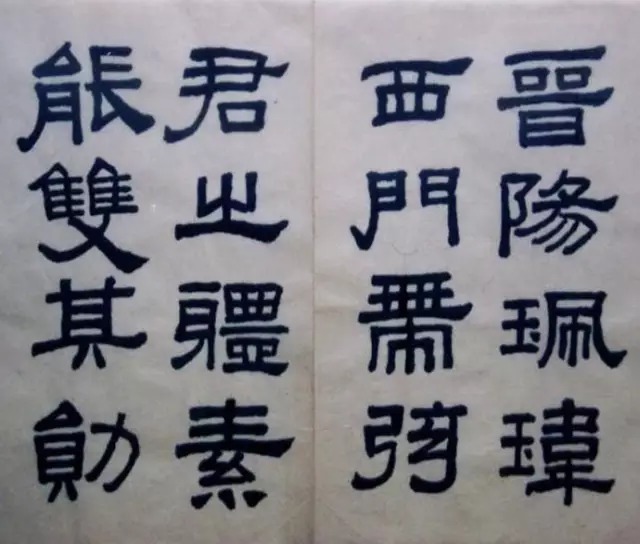 晉陽珮瑋
西門帶弦
君之軆素
能雙其勛